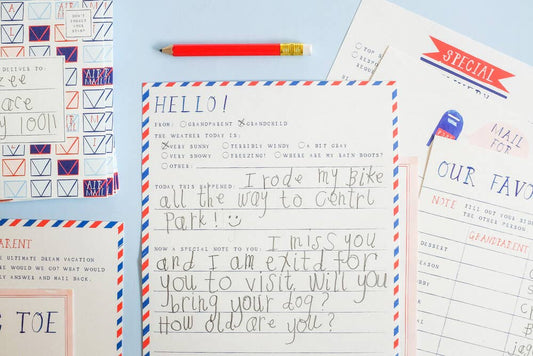 DON'T FORGET YOUR STAMP!
DELIVER TO:
zee
are
y 10011
HELLO!
FROM: GRANDPARENT GRANDCHILD
THE WEATHER TODAY IS:
VERY SUNNY TERRIBLY WINDY A BIT GRAY
VERY SNOWY FREEZING! WHERE ARE MY RAIN BOOTS?
OTHER:
TODAY THIS HAPPENED: I rode my Bike
all the way to Centrl
Park!
NOW A SPECIAL NOTE TO YOU: I miss you
and I am exitd for
you to visit. Will you
bring your dog?
How old are you?
SPECIAL
MAIL
FOR
OUR FAVO
NOTE FILL OUT YOUR SIDE
THE OTHER PERSON
GRANDPARENT
DESSERT
ARENT
E ULTIMATE DREAM VACATION
RE WOULD WE GO? WHAT WOULD
LY ANSWER AND MAIL BACK.
TOE